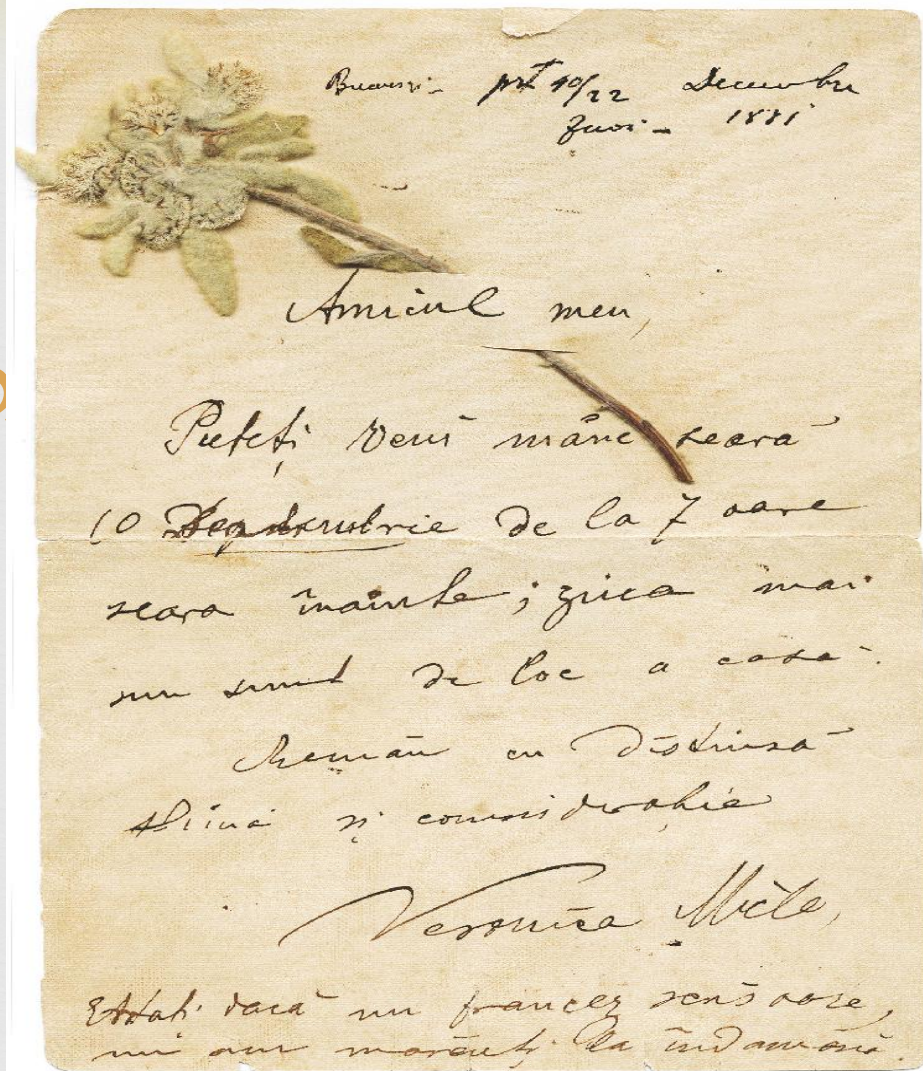 București - 10/22 Decembre
Juoi - 1881
Amicul meu,
Puteți veni mâne seară
10 de la 7 oare
seara înainte; ziua mai
nu sunt de loc a casă.
Remân cu distinsă
stimă și considerație
Veronica Micle,
dacă nu francez
nu am la îndămână.